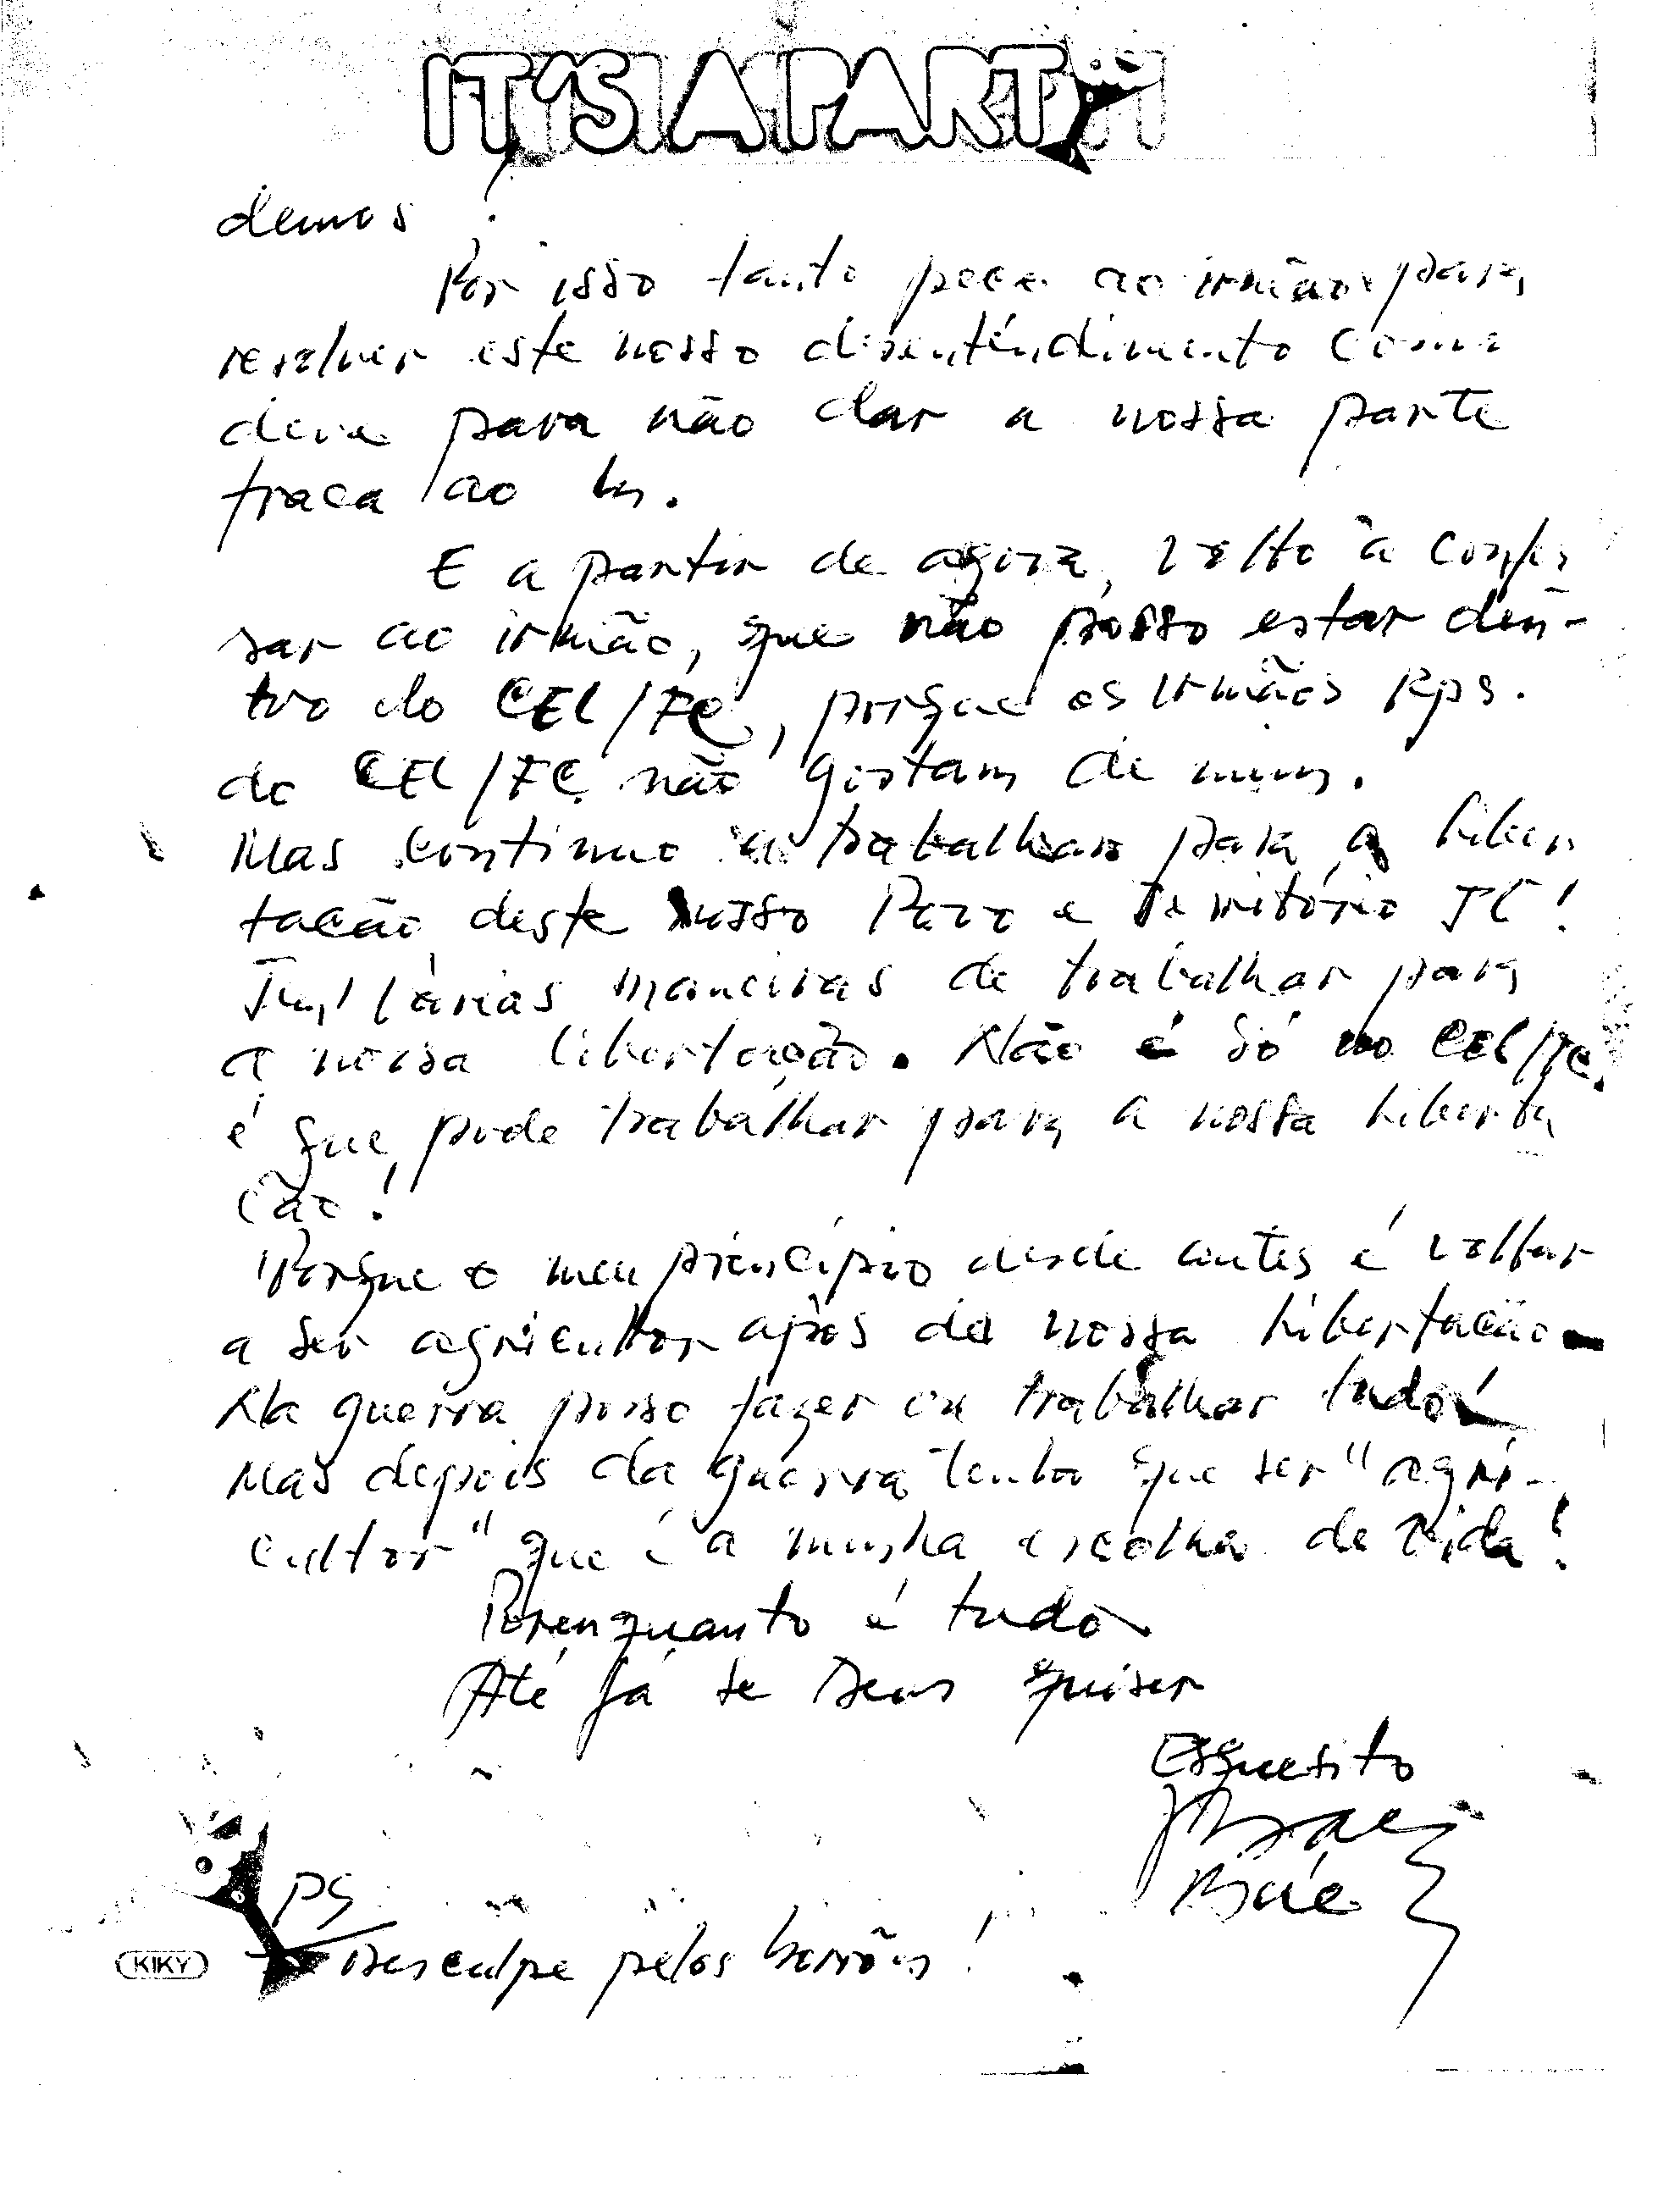 IT'S A PARTY
demos?
Por isso tanto peço ao irmão para
resolver este nosso disentendimento como
deve para não dar a nossa parte
fraca ao
E a partir de agora, volto à confes
sar ao irmão, que não posso estar den-
tro do CEL/FC, porque os irmãos Rps.
do CEL/FC não gostam de mim.
Mas continuo a trabalhar para a liber
tação deste nosso Povo e Território TL!
Tem várias maneiras de trabalhar para
a nossa libertação. Não é só no CEL/FC.
é que pode trabalhar para a nossa liberta
ção!
Porque o meu princípio desde antes é voltar
a ser agricultor após da nossa libertação
Na guerra posso fazer ou trabalhar tudo!
Mas depois da guerra tenho que ser "agri-
cultor" que é a minha escolha de vida!
Por enquanto é tudo
Até já se Deus quiser
Esquesito
Búe
PS
Desculpe pelos borrões!
KIKY